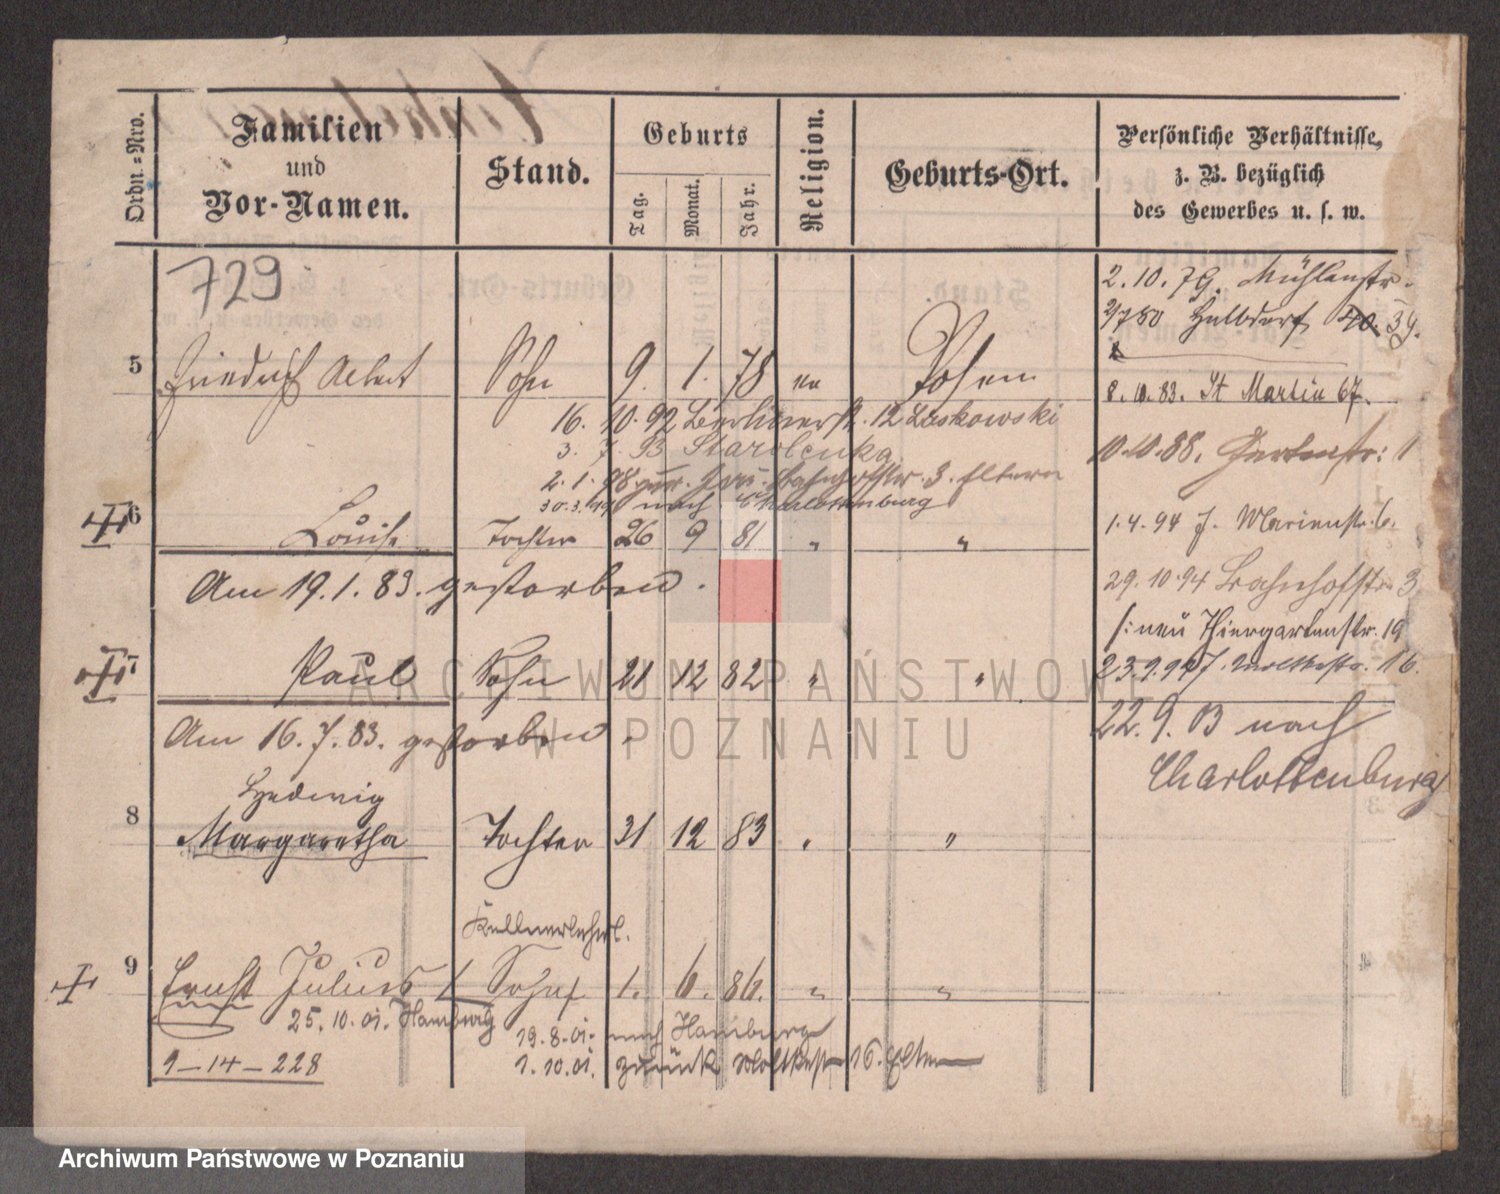 Ordn.-Nro.
Familien
und
Vor-Namen.
Stand.
Geburts
Tag.
Monat.
Jahr.
Religion.
Geburts-Ort.
Persönliche Verhältnisse,
z. B. bezüglich
des Gewerbes u. s. w.
729
2. 10. 79. Mühlenstr.
39.
5 Friedrich Albert Sohn 9. 1. 78 ev Posen
8. 83. St Martin 67.
16. 10. 92 Berlinerst. 12 Laskowski
3. 7. 93 Starolenka
10.10.88. Gartenstr: 1
2. 1. 98 Bahnhofstr. 3. Eltern
nach Charlottenburg
6 Louise Tochter 26 9 81 " "
1. 4. 94 J. Marienstr. 6.
Am 19. 1. 83. gestorben.
29. 10. 94 Bahnhofstr. 3
/: neu Thiergartenstr. 19
7 Paul Sohn 21 12 82 " "
Moltkestr. 16.
Am 16. 7. 83. gestorben.
22. 9. 03 nach
Charlottenburg
Hedwig
8 Margaretha Tochter 31 12 83 " "
Kellnerlehrl.
9 Ernst Julius Sohn 1. 6. 86. " "
25. 10. 01. Hamburg
19. 8. 01. nach Hamburg
9-14-228
1. 10. 01. zurück Moltkestr 16. Eltern
ARCHIWUM PAŃSTWOWE
W POZNANIU
Archiwum Państwowe w Poznaniu